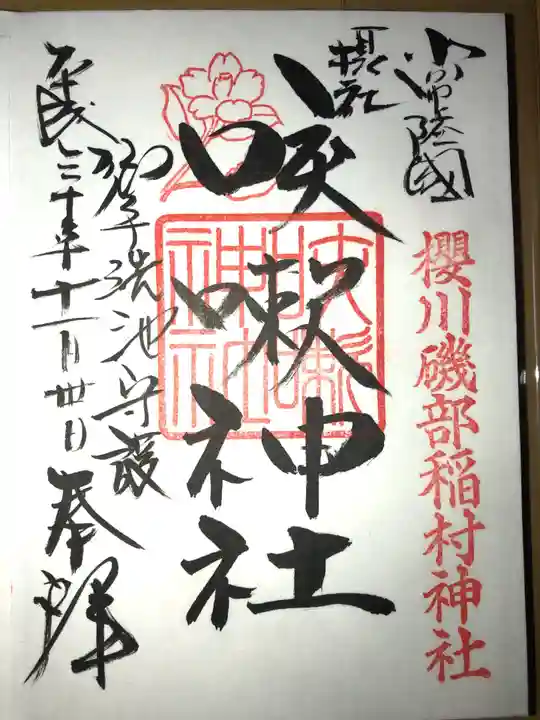 常陸國
櫻川磯部稲村神社
摂社
咳嗽神社
咳嗽神社
御手洗池守護
平成三十年十一月卅日奉拝